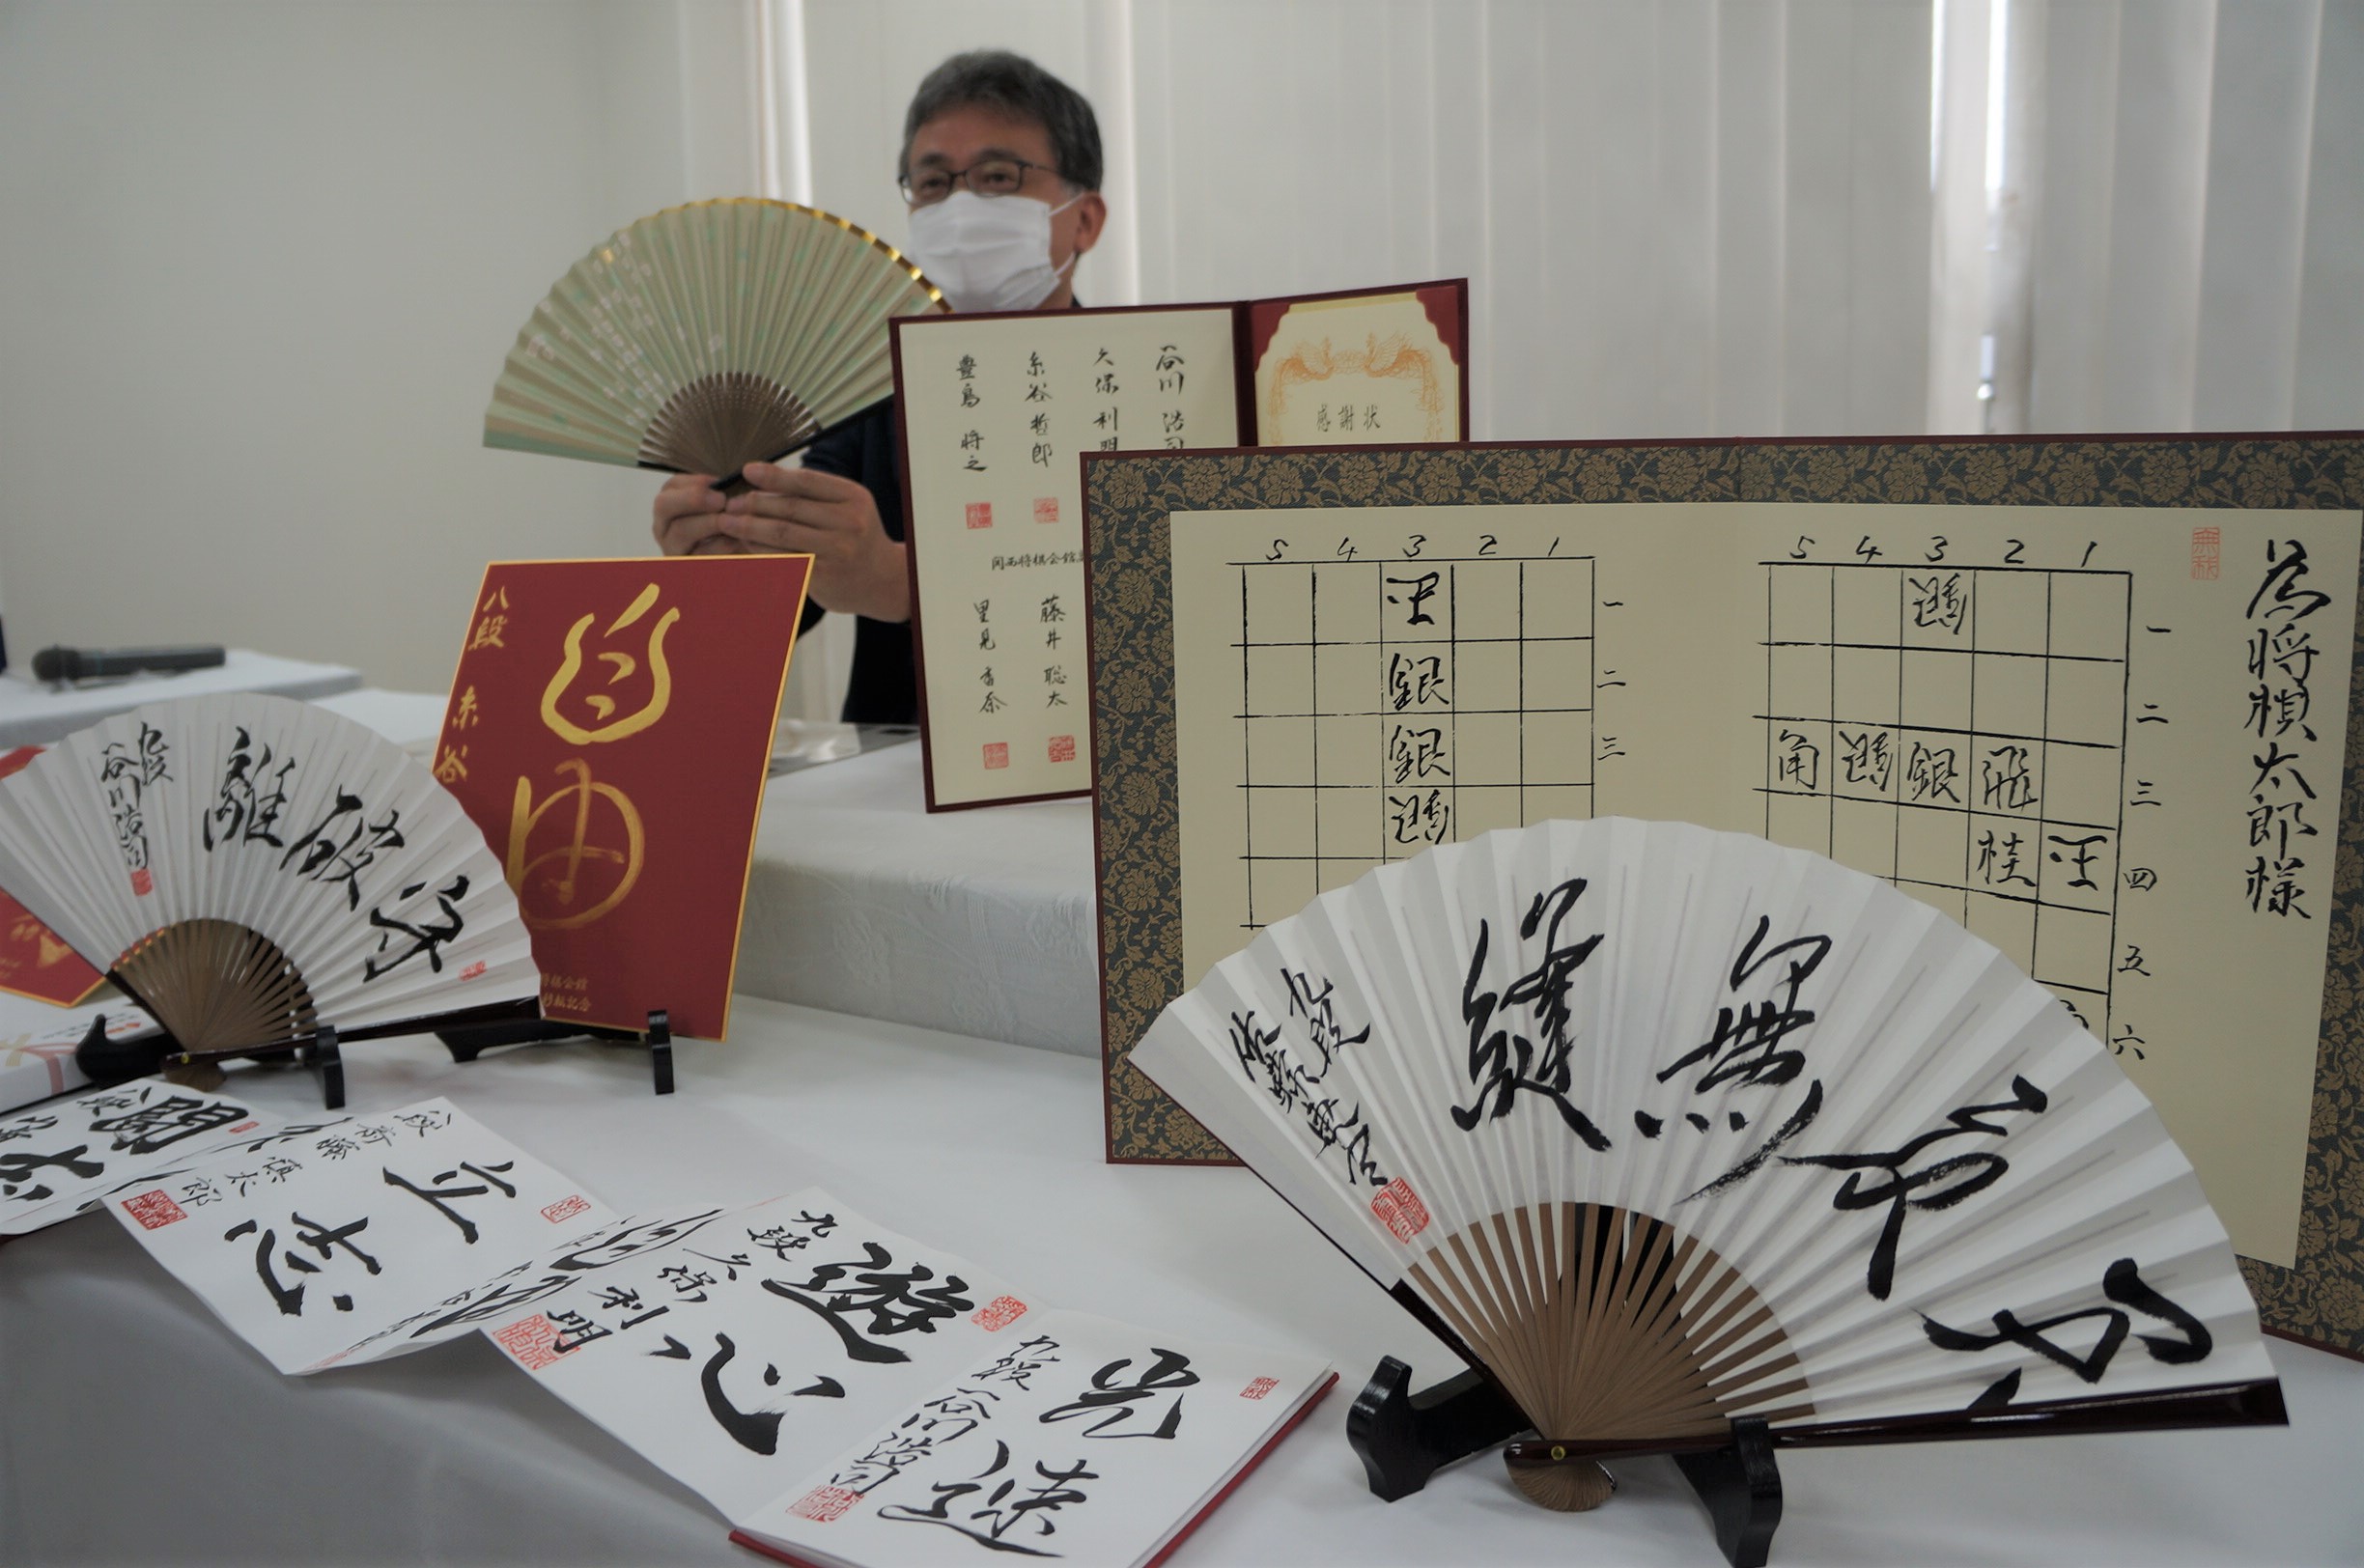 谷川 浩司
久保 利明
糸谷 哲郎
豊島 将之
関西将棋会館
藤井 聡太
里見 香奈
感謝状
5 4 3 2 1
王
銀
銀
銀
一
二
三
5 4 3 2 1
銀
角 銀 銀 飛
桂 王
一
二
三
四
五
六
為将棋太郎様
自由
八段 糸谷
将棋会館
記念
守破離
九段 谷川浩司
天衣無縫
九段 佐藤康光
闘志
八段
立志
段 斎藤慎太郎
遊心
九段 久保利明
光速
九段 谷川浩司